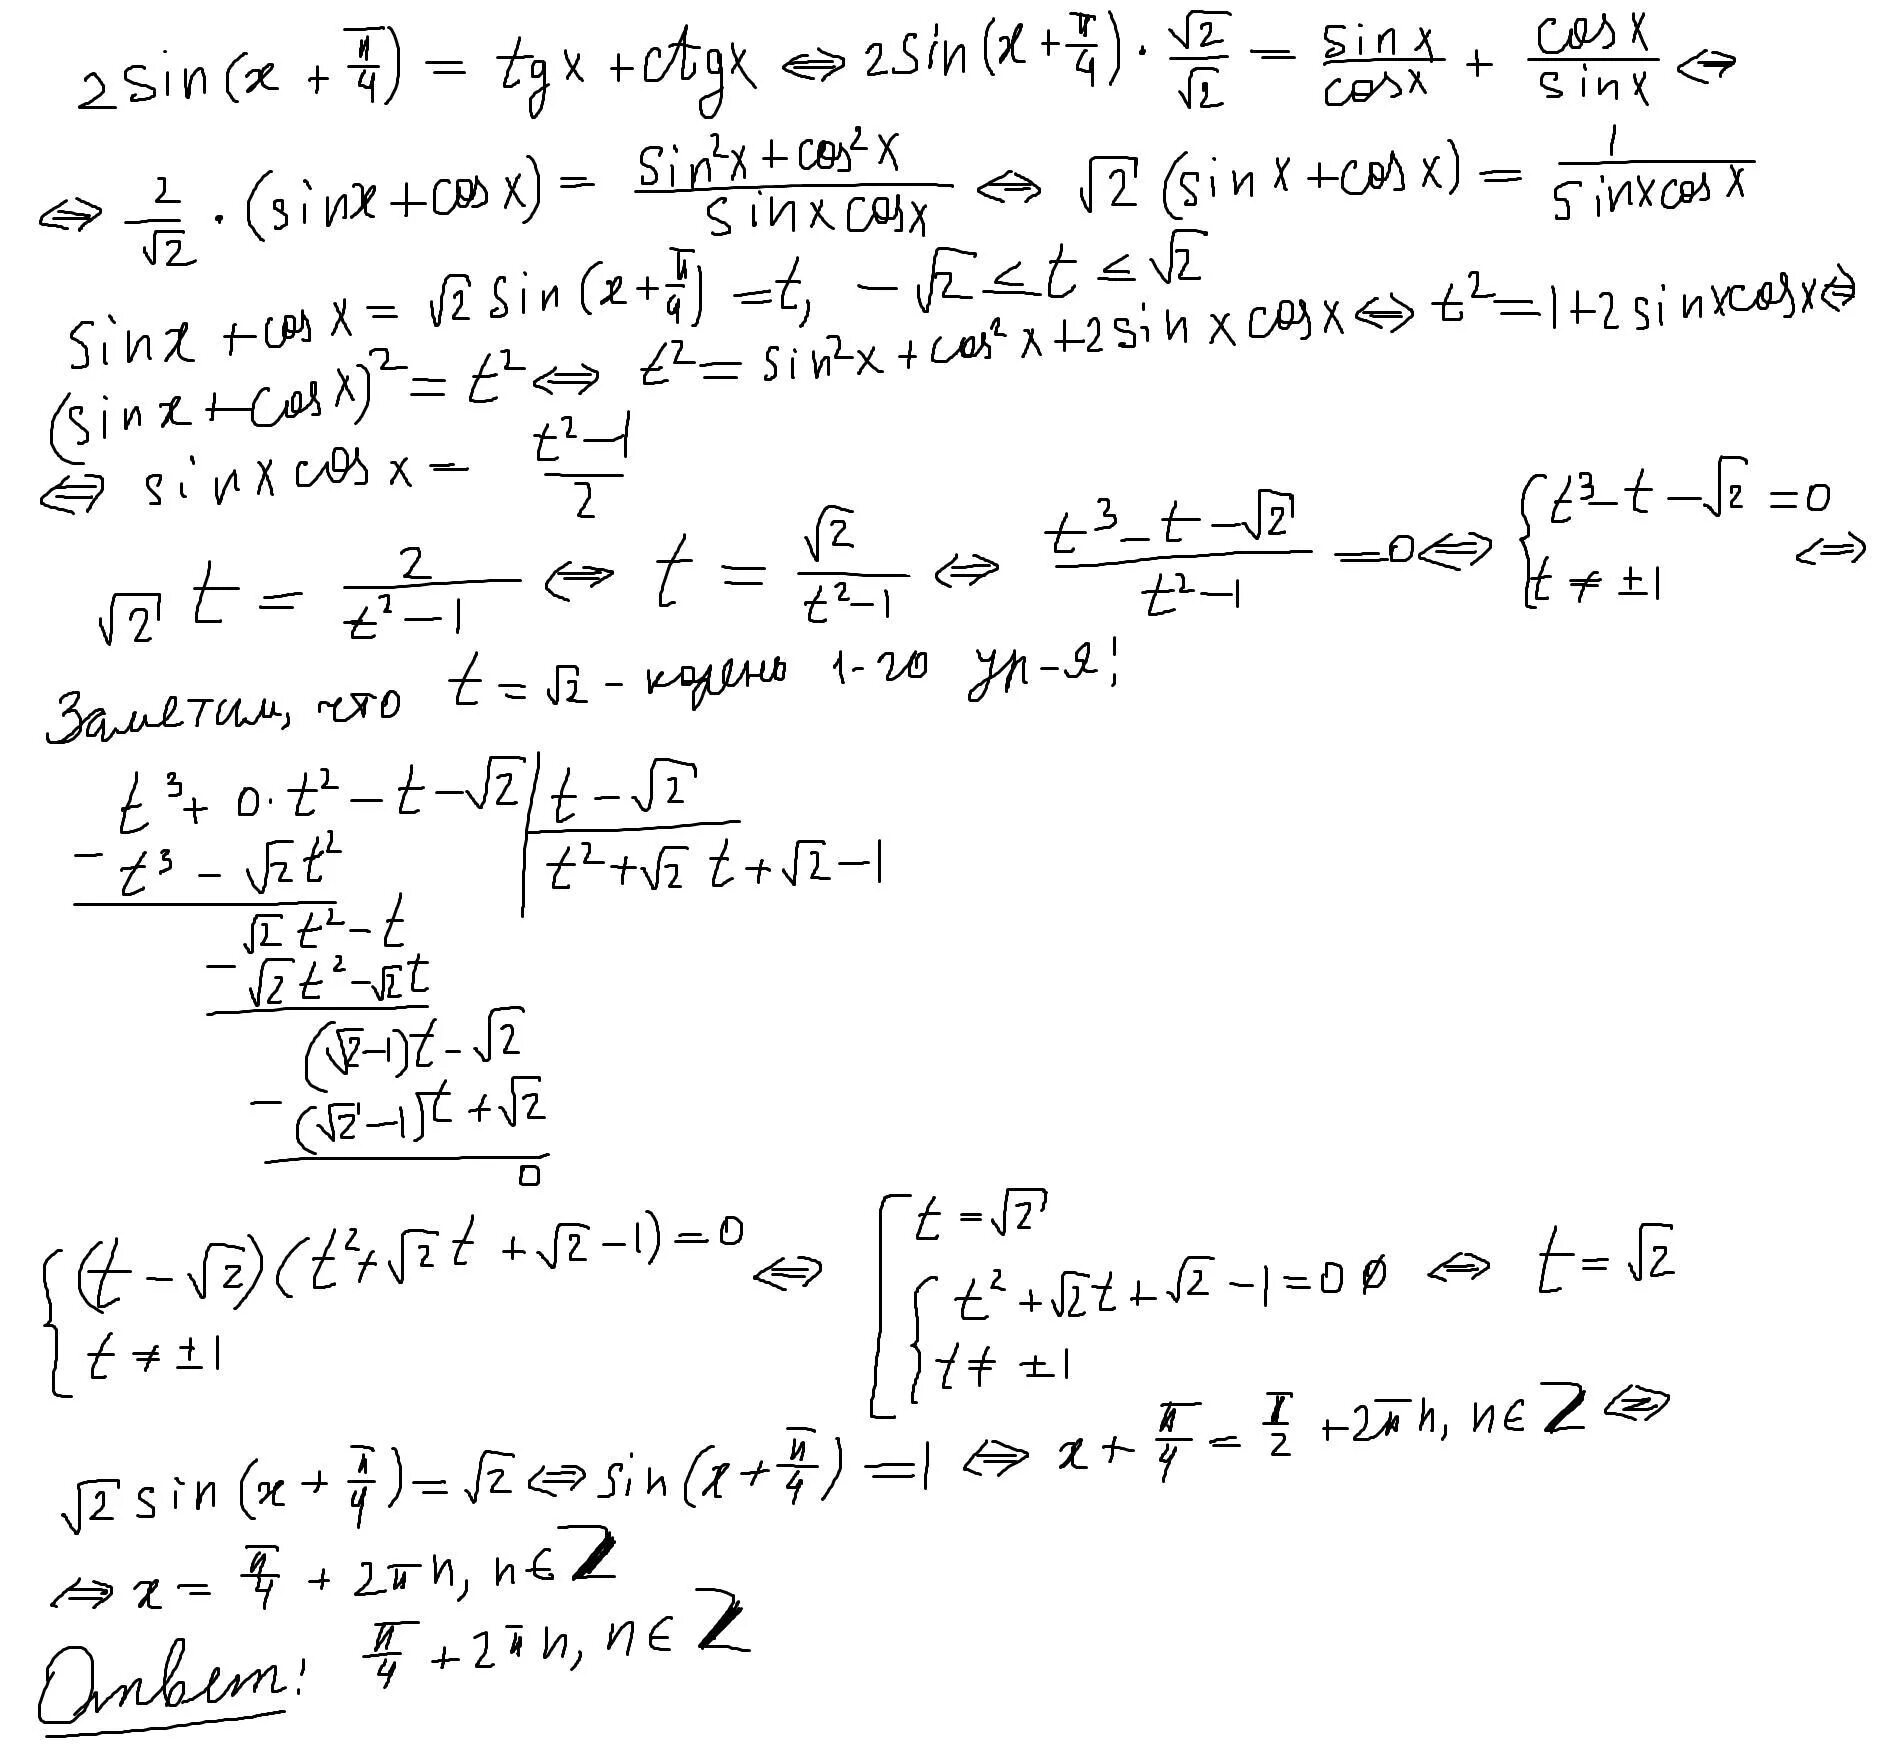 2sin(x + π/4) = tgx + ctgx ⇔ 2sin(x + π/4) · √2/√2 = sinx/cosx + cosx/sinx ⇔
⇔ 2/√2 · (sinx + cosx) = (sin²x + cos²x)/(sinx cosx) ⇔ √2 (sinx + cosx) = 1/(sinxcosx)
sinx + cosx = √2 sin(x + π/4) = t, -√2 ≤ t ≤ √2
(sinx + cosx)² = t² ⇔ t² = sin²x + cos²x + 2sinxcosx ⇔ t² = 1 + 2sinxcosx ⇔
⇔ sinxcosx = (t² - 1)/2
√2 t = 2/(t² - 1) ⇔ t = √2/(t² - 1) ⇔ (t³ - t - √2)/(t² - 1) = 0 ⇔ { t³ - t - √2 = 0
t ≠ ±1 ⇔
Заметим, что t = √2 - корень 1-го ур-я!
t³ + 0·t² - t - √2 | t - √2
- t³ - √2t² | t² + √2 t + √2 - 1
√2 t² - t
- √2 t² - √2t
(√2 - 1)t - √2
- (√2 - 1)t + √2
0
{ (t - √2)(t² + √2 t + √2 - 1) = 0
t ≠ ±1 ⇔ [ t = √2
{ t² + √2t + √2 - 1 = 0 ∅
t ≠ ±1 ⇔ t = √2
√2 sin(x + π/4) = √2 ⇔ sin(x + π/4) = 1 ⇔ x + π/4 = π/2 + 2πn, n∈Z ⇔
⇔ x = π/4 + 2πn, n∈Z
Ответ: π/4 + 2πn, n∈Z